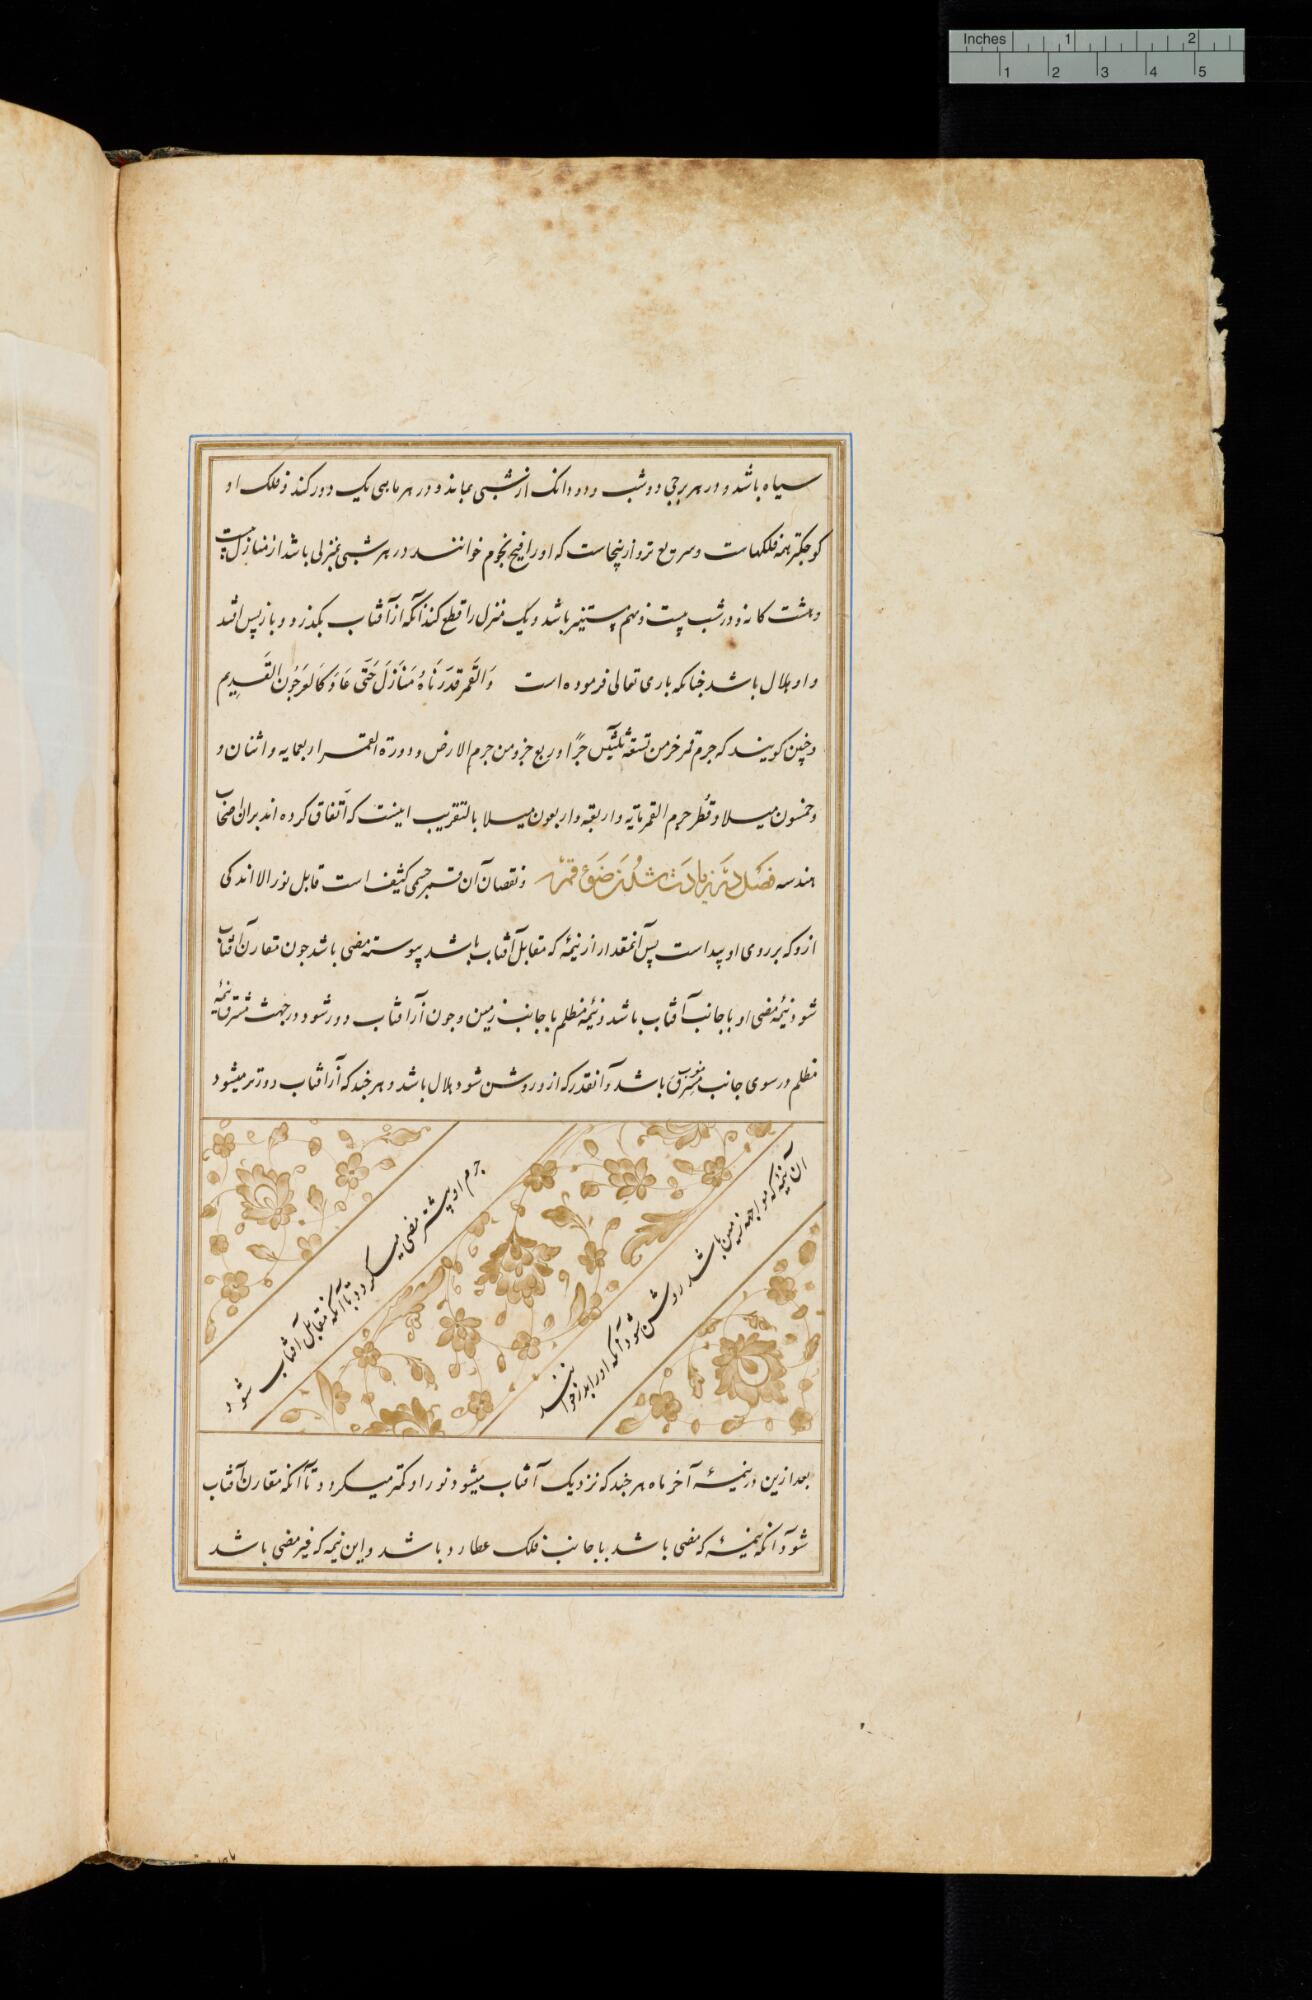 Inches 1 2
1 2 3 4 5
سیاه باشد و در هر برجی دو شب و دو دانک از شبی بماند و در هر ماهی یک دور کند و فلک او
کوجکتر همه فلکهاست و سریع تر و ازینجاست که او را فیج نجوم خوانند در هر شبی بمنزلی باشد از منازل بیست
و هشت کانه و در شب بیست و نهم مستتیر باشد و یک منزل را قطع کند آنکه از آفتاب بکذرد و باز پس افتد
و او هلال باشد جنانکه باری تعالی فرموده است وَالقَمَر قدَرنَاهُ مَنَازَلَ حَتَّی عَادَ کَالعَرجُونِ القَدِیم
و جنین کویند که جرم قمر جزء من تسعة ثلثین جزًا و ربع جزو من جرم الارض و دورة القمر اربعمایه و اثنان و
و خمسون میلا و قُطر جرم القمر مایه و اربعة و اربعون میلا بالتقریب اینست که اتفاق کرده اند بران اصحاب
هندسه فصل در زیادت شدن ضوء قمر و نقصان آن قمر جسمی کثیف است قابل نور الا اندکی
ازو که بر روی او پیداست پس آنمقدار از نیمهٔ که مقابل آفتاب باشد پیوسته مضی باشد جون مقارن آفتاب
شود نیمهٔ مضی او با جانب آفتاب باشد و نیمهٔ مظلم با جانب زمین و جون از آفتاب دور شود در جهت مشرق نیمهٔ
مظلم در سوی جانب مغرب باشد و آنقدر که ازو روشن شود هلال باشد و هر جند که از آفتاب دورتر میشود
جرم او پیشتر مضی میکردد تا آنکه مقابل آفتاب شود
ان نیمهٔ که مواجهه زمین باشد روشن شود آنکه او را بدر خوانند
بعد ازین در نیمهٔ آخر ماه هر جند که نزدیک آفتاب میشود نور او کمتر میکردد تا آنکه مقارن آفتاب
شود آنکه نیمهٔ که مضی باشد با جانب فلک عطارد باشد و این نیمه که غیر مضی باشد